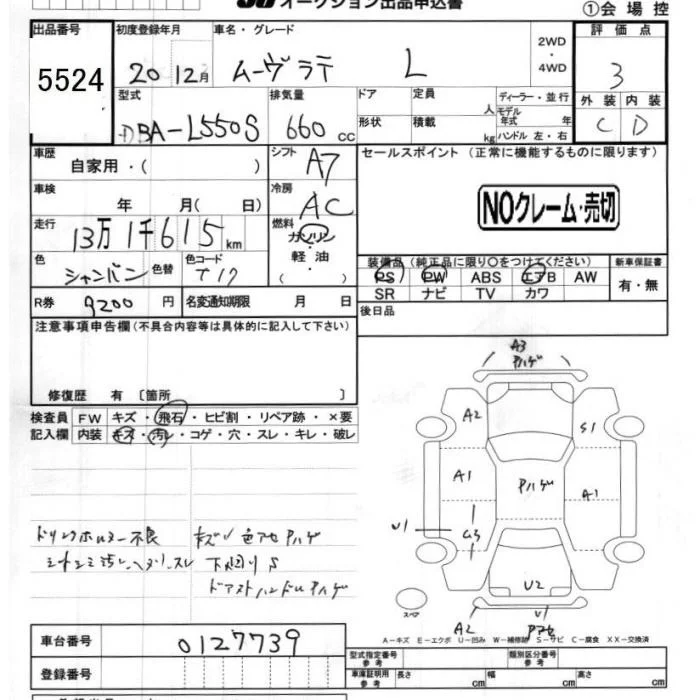 オークション出品申込書
①会場控
出品番号 初度登録年月 車名・グレード 評価点
5524 20 12月 ムーヴ ラテ L 2WD・4WD 3
型式 排気量 ドア 定員 人 ディーラー・並行 外装 内装
DBA-L550S 660cc 形状 積載 kg モデル年式 年 ハンドル 左・右 C D
車歴 自家用・( ) シフト A7 セールスポイント (正常に機能するものに限ります)
車検 年 月( 日) 冷房 AC NOクレーム・売切
走行 13万1千615km 燃料 ガソリン・軽油
色 シャンパン 色替 色コード T17 装備品(純正品に限り○をつけてください) 新車保証書
PS PW ABS エアB AW 有・無
SR ナビ TV カワ
R券 9200円 名変通知期限 月 日 後日品
注意事項申告欄(不具合内容等は具体的に記入して下さい)
修復歴 有〔箇所 〕
検査員記入欄 FW キズ・飛石・ヒビ割・リペア跡・×要
内装 キズ・汚レ・コゲ・穴・スレ・キレ・破レ
ドリンクホルダー不良 キズ 色アセ ハゲ
下廻りS
A3
ハゲ
A2 S1
A1 ハゲ A1
U1
U2
スペア A2 U1
A-キズ E-エクボ U-凹み W-補修跡 S-サビ C-腐食 XX-交換済
車台番号 0127739
登録番号
型式指定番号 参考 類別区分番号 参考
車庫証明用 参考 長さ cm 幅 cm 高さ cm